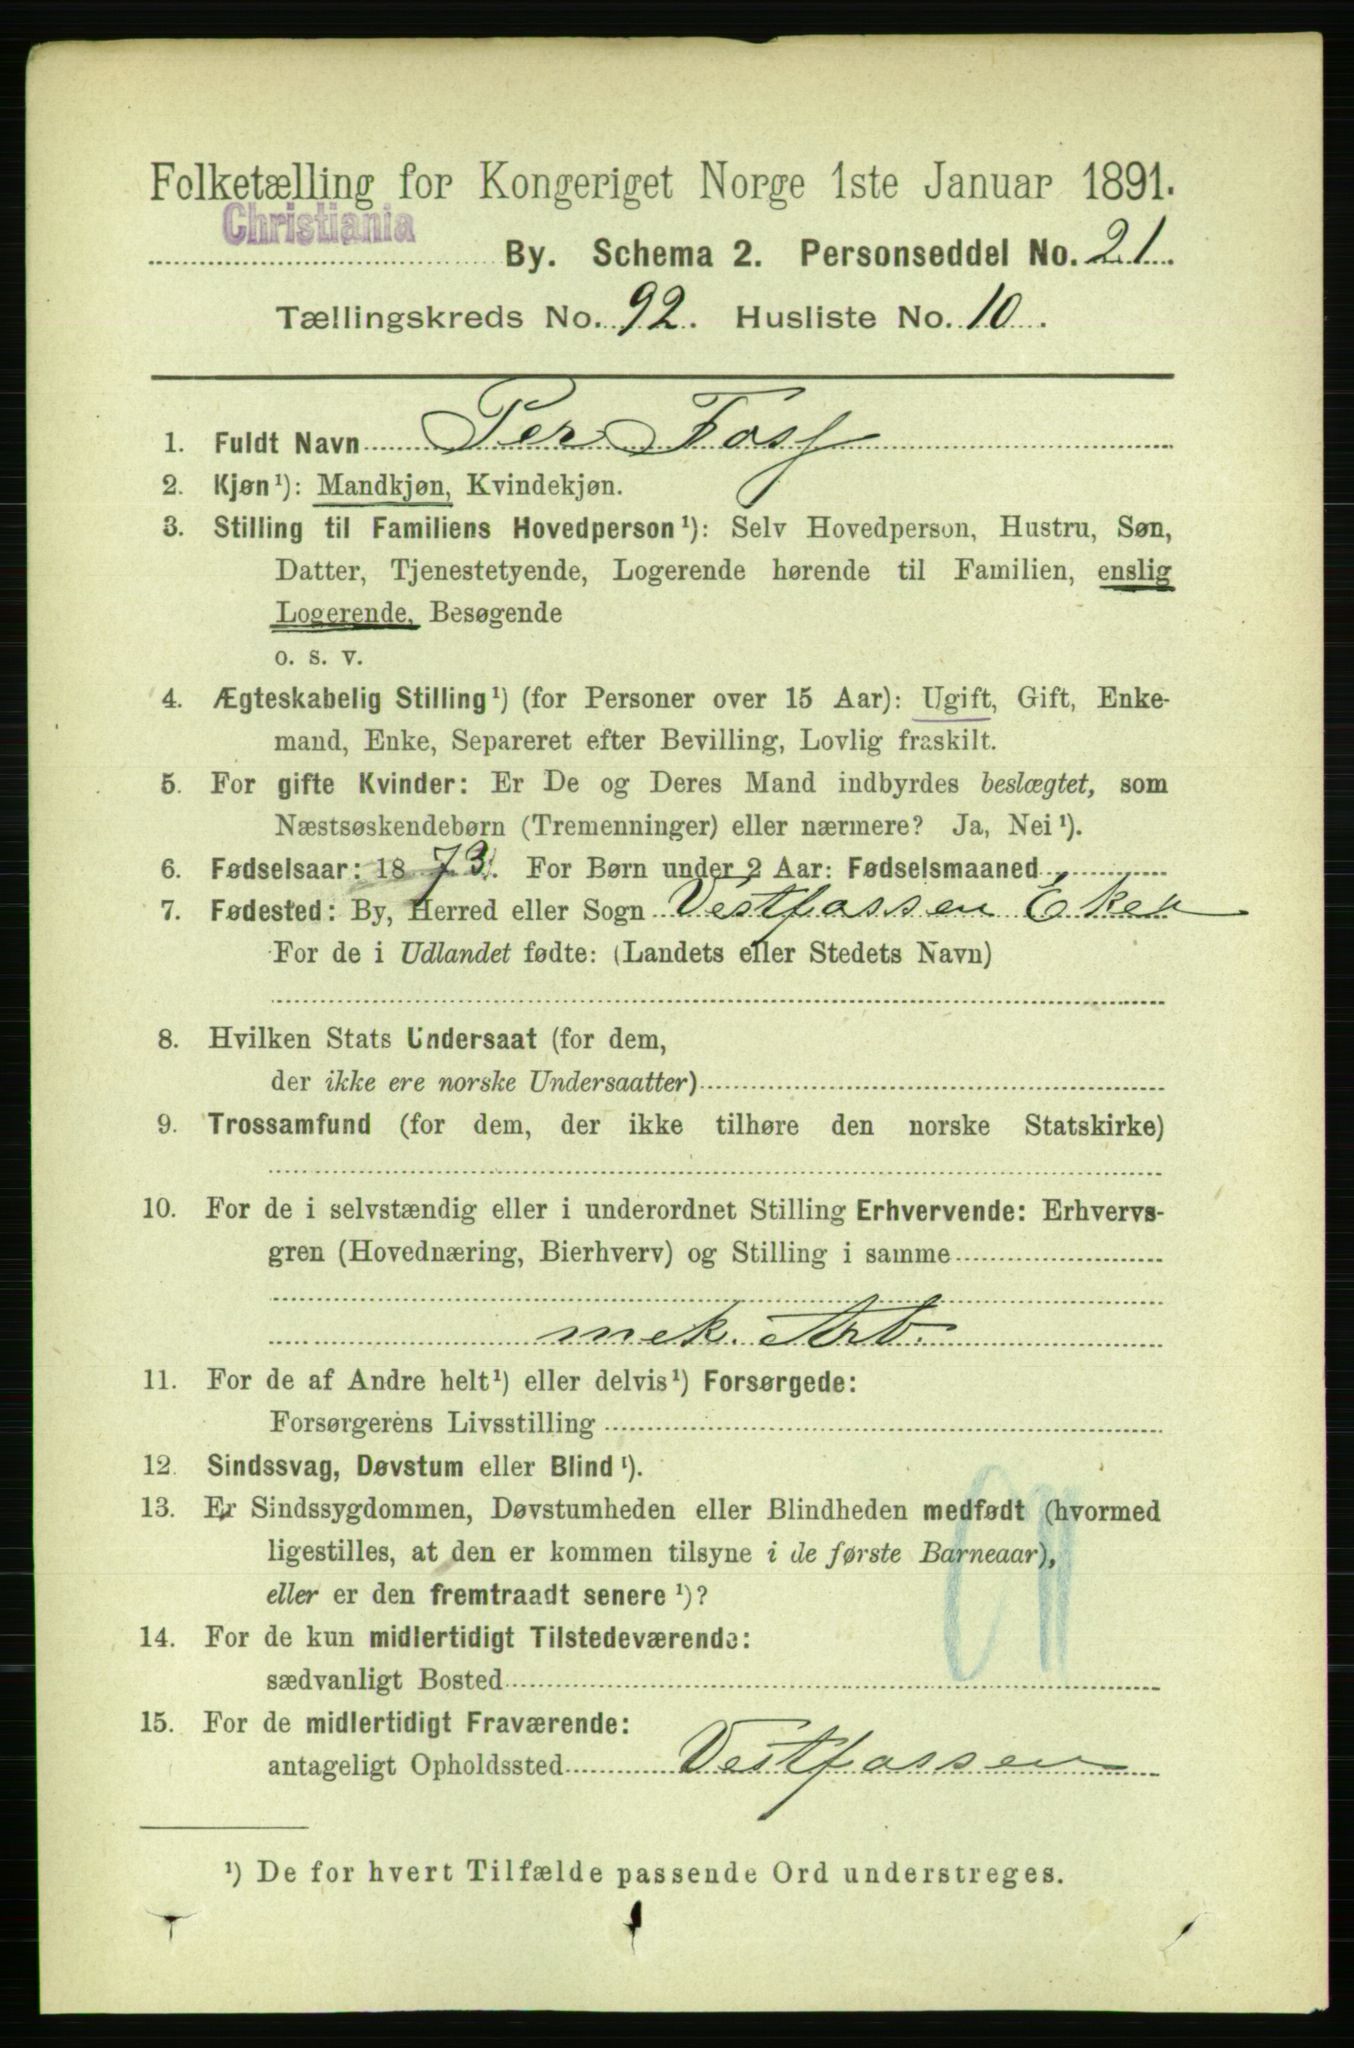 Folketælling for Kongeriget Norge 1ste Januar 1891.
Christiania
By. Schema 2. Personseddel No. 21.
Tællingskreds No. 92. Husliste No. 10.
1. Fuldt Navn Per Foss
2. Kjøn¹): Mandkjøn, Kvindekjøn.
3. Stilling til Familiens Hovedperson¹): Selv Hovedperson, Hustru, Søn,
Datter, Tjenestetyende, Logerende hørende til Familien, enslig
Logerende, Besøgende
o. s. v.
4. Ægteskabelig Stilling¹) (for Personer over 15 Aar): Ugift, Gift, Enke-
mand, Enke, Separeret efter Bevilling, Lovlig fraskilt.
5. For gifte Kvinder: Er De og Deres Mand indbyrdes beslægtet, som
Næstsøskendebørn (Tremenninger) eller nærmere? Ja, Nei¹).
6. Fødselsaar: 1873. For Børn under 2 Aar: Fødselsmaaned
7. Fødested: By, Herred eller Sogn Vestfossen Eker
For de i Udlandet fødte: (Landets eller Stedets Navn)
8. Hvilken Stats Undersaat (for dem,
der ikke ere norske Undersaatter)
9. Trossamfund (for dem, der ikke tilhøre den norske Statskirke)
10. For de i selvstændig eller i underordnet Stilling Erhvervende: Erhvervs-
gren (Hovednæring, Bierhverv) og Stilling i samme
mek. Arb.
11. For de af Andre helt¹) eller delvis¹) Forsørgede:
Forsørgerens Livsstilling
12. Sindssvag, Døvstum eller Blind¹).
13. Er Sindssygdommen, Døvstumheden eller Blindheden medfødt (hvormed
ligestilles, at den er kommen tilsyne i de første Barneaar),
eller er den fremtraadt senere¹)?
14. For de kun midlertidigt Tilstedeværende:
sædvanligt Bosted
15. For de midlertidigt Fraværende:
antageligt Opholdssted Vestfossen
¹) De for hvert Tilfælde passende Ord understreges.